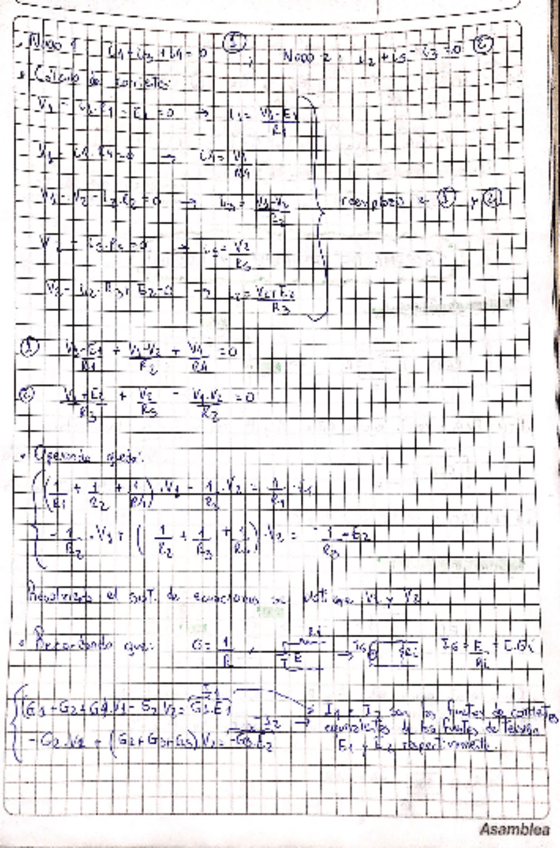 . Nodo 1 i1+i3+i4=0 ① ; Nodo 2: i2+i5-i3=0 ②
. Cálculo de corrientes:
V1 - i1.R1 - E1 =0 → i1= V1-E1/R1
V1 - i4.R4=0 → i4= V1/R4
V1-V2-i3.R2=0 → i3= V1-V2/R2 reemplazo en ① y ②
V2 - i5.R5=0 → i5= V2/R5
V2-i2.R3+E2=0 → i2= V2+E2/R3
① V1-E1/R1 + V1-V2/R2 + V1/R4 =0
② V2+E2/R3 + V2/R5 - V1-V2/R2 =0
. Operando queda:
(1/R1 + 1/R2 + 1/R4).V1 - 1/R2.V2 = 1/R1.E1
-1/R2.V1+(1/R2 + 1/R3 + 1/R5).V2= -1/R3.E2
Resolviendo el sist. de ecuaciones se obtiene V1 y V2.
. Recordando que: G=1/R , Ri E → IG Ri IG= E/Ri =E.Gi
(G1+G2+G4).V1-G2.V2= G1.E1 I1 → I1 e I2 son las fuentes de corrientes
equivalentes de las fuentes de tensión
-G2.V1+(G2+G3+G5)V2=-G3.E2 I2 E1 y E2 respectivamente.
Asamblea